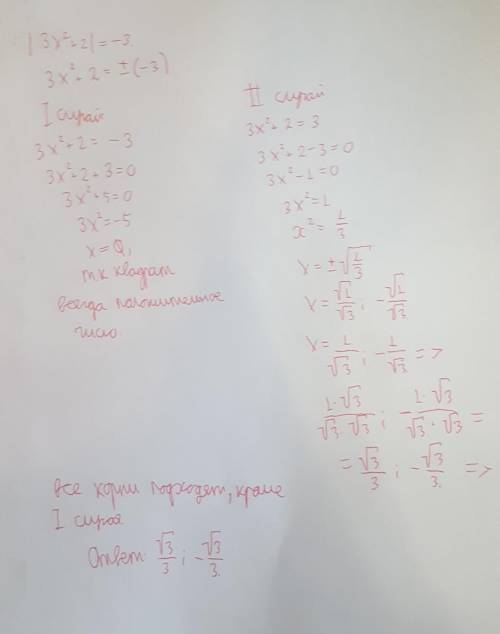 |3x²+2|=-3.
3x²+2=±(-3)
I случай
3x²+2=-3
3x²+2+3=0
3x²+5=0
3x²=-5
x=Ø,
т.к квадрат
всегда положительное
число.
II случай
3x²+2=3
3x²+2-3=0
3x²-1=0
3x²=1
x²=1/3
x=±√(1/3)
x=√1/√3; -√1/√3
x=1/√3; -1/√3 =>
1·√3/(√3·√3); -1·√3/(√3·√3) =
=√3/3; -√3/3. =>
Все корни подходят, кроме
I случая
Ответ: √3/3; -√3/3.